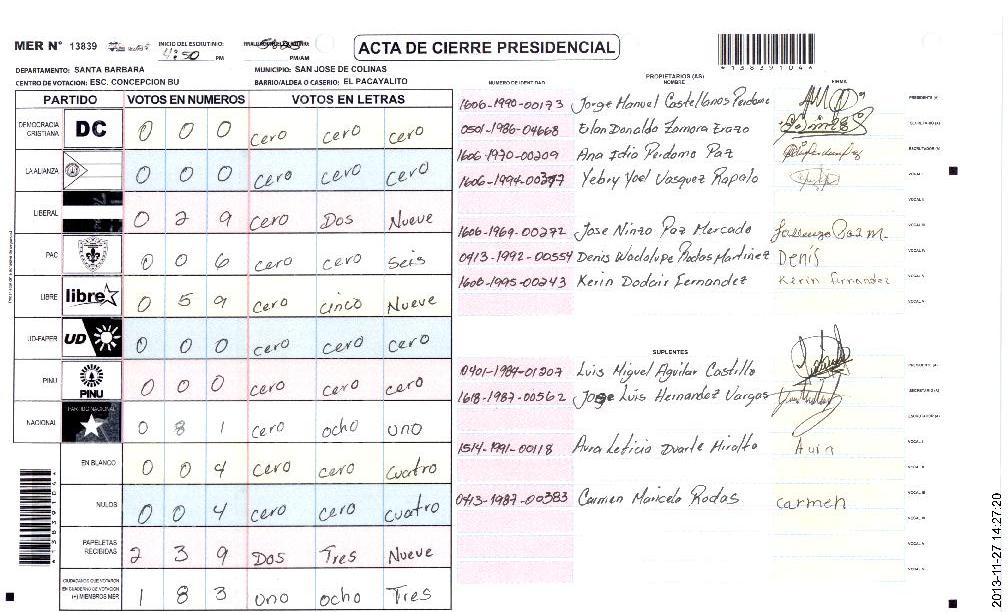 MER N° 13839 INICIO DEL ESCRUTINIO: 4:50 PM PM/AM
ACTA DE CIERRE PRESIDENCIAL
*13839104*
DEPARTAMENTO: SANTA BARBARA MUNICIPIO: SAN JOSE DE COLINAS
CENTRO DE VOTACION: ESC. CONCEPCION BU BARRIO/ALDEA O CASERIO: EL PACAYALITO
PARTIDO VOTOS EN NUMEROS VOTOS EN LETRAS
DEMOCRACIA CRISTIANA DC 0 0 0 cero cero cero
LA ALIANZA 0 0 0 cero cero cero
LIBERAL 0 2 9 cero Dos Nueve
PAC 0 0 6 cero cero seis
LIBRE libre 0 5 9 cero cinco Nueve
UD-FAPER UD 0 0 0 cero cero cero
PINU PINU 0 0 0 cero cero cero
NACIONAL PARTIDO NACIONAL 0 8 1 cero ocho uno
EN BLANCO 0 0 4 cero cero cuatro
NULOS 0 0 4 cero cero cuatro
PAPELETAS RECIBIDAS 2 3 9 Dos Tres Nueve
CIUDADANOS QUE VOTARON EN CUADERNO DE VOTACION (+) MIEMBROS MER 1 8 3 uno ocho Tres
NUMERO DE IDENTIDAD PROPIETARIOS (AS) NOMBRE FIRMA
1606-1990-00173 Jorge Manuel Castellanos Perdomo PRESIDENTE (A)
0501-1986-04668 Elan Donaldo Zamora Erazo SECRETARIO (A)
1606-1970-00209 Ana Idia Perdomo Paz ESCRUTADOR (A)
1606-1994-00397 Yebry Yoel Vasquez Rapalo VOCAL I
VOCAL II
1606-1969-00272 Jose Ninzo Paz Mercado VOCAL III
0413-1992-00554 Denis Wadalupe Rodas Martinez Denis VOCAL IV
1606-1995-00243 Kerin Dodair Fernandez Kerin Fernandez VOCAL V
VOCAL VI
SUPLENTES
0401-1984-01207 Luis Miguel Aguilar Castillo PRESIDENTE (A)
1618-1987-00562 Jorge Luis Hernandez Vargas SECRETARIO (A)
ESCRUTADOR (A)
1514-1991-00118 Aura Leticia Duarte Miralto Aura VOCAL I
VOCAL II
0413-1987-00383 Carmen Maricela Rodas carmen VOCAL III
VOCAL IV
VOCAL V
VOCAL VI
*13839104*
2013-11-27 14:27:20